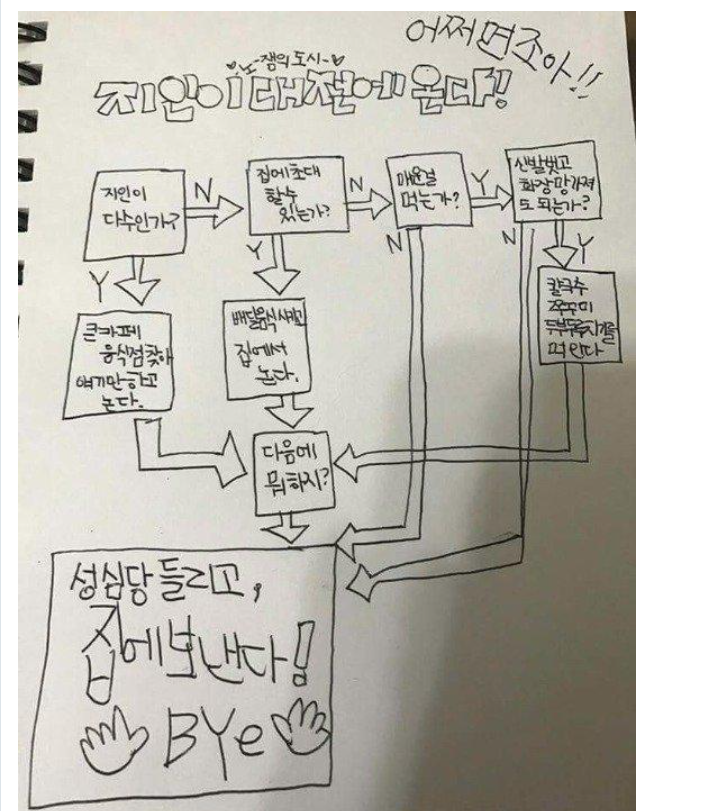 어쩌면조아!!
노잼의도시
지인이대전에온다!
지인이
다수인가?
N
집에초대
할수
있는가?
N
매운걸
먹는가?
Y
신발벗고
화장망가져
도되는가?
Y
Y
N
N
Y
큰카페
음식점찾아
얘기만하고
논다.
배달음식시키고
집에서
논다.
칼국수
쭈꾸미
두부두루치기를
먹인다
다음에
뭐하지?
성심당들리고,
집에보낸다!
BYe